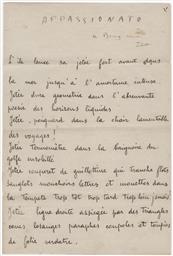 APPASSIONATO
S'il lance sa jetée fort avant dans
la mer jusqu'à l'amertume intense.
Jetée dure géométrie dans l'abreuvante
poésie des horizons liquides
Jetée, poignard dans la chair lamentable
des voyages!
Jetée Thermomètre dans la baignoire du
golfe
Jetée couperet de guillotine qui tranche flots
sanglots mouchoirs lettres et mouettes dans
la Tempête Trop tôt trop tard Trop loin jamais!
Jetée ligne droite assiégée par des Triangles
cones losanges paraphes coupoles et toupies
de folie verdatre.